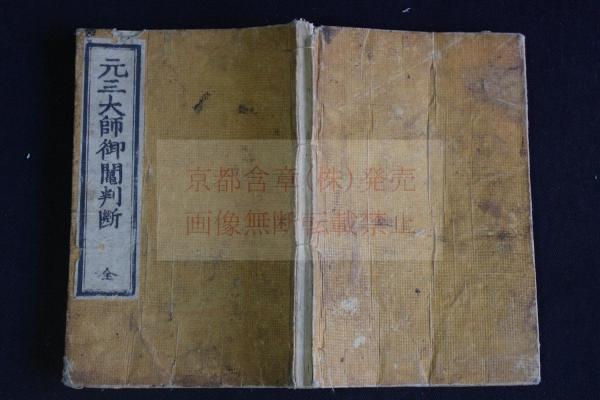 元三大師御鬮判断
全
京都含章(株)発売
画像無断転載禁止